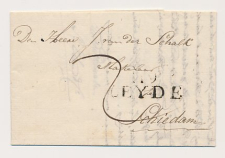 De Heer J van der Schalk
Makelaar
LEYDE
Schiedam